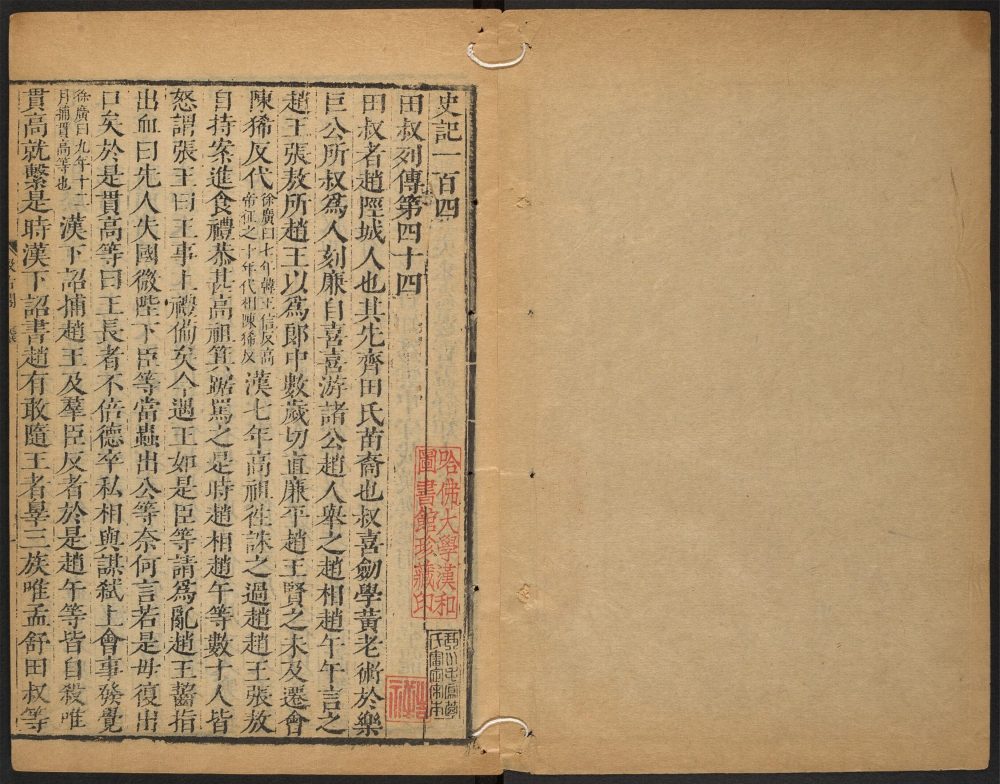 史記一百四
田叔列傳第四十四
田叔者趙陘城人也其先齊田氏苗裔也叔喜劒學黃老術於樂
巨公所叔爲人刻廉自喜喜游諸公趙人舉之趙相趙午午言之
趙王張敖所趙王以爲郎中數歲切直廉平趙王賢之未及遷會
陳豨反代徐廣曰七年韓王信反高帝征之十年代相陳豨反漢七年高祖往誅之過趙趙王張敖
自持案進食禮恭甚高祖箕踞罵之是時趙相趙午等數十人皆
怒謂張王曰王事上禮備矣今遇王如是臣等請爲亂趙王齧指
出血曰先人失國微陛下臣等當蟲出公等奈何言若是毋復出
口矣於是貫高等曰王長者不倍德卒私相與謀弑上會事發覺
徐廣曰九年十二月捕貫高等也漢下詔捕趙王及羣臣反者於是趙午等皆自殺唯
貫高就繫是時漢下詔書趙有敢隨王者辠三族唯孟舒田叔等
哈佛大學漢和
圖書館珍藏印